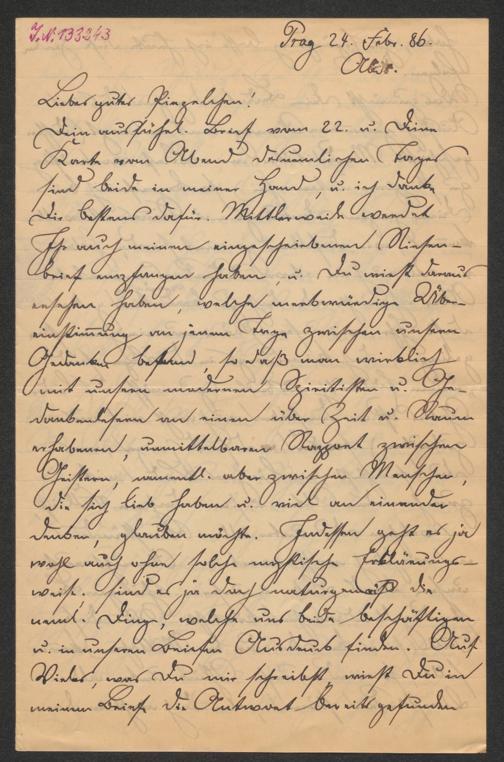 J.N. 133243
Prag 24. Febr. 86.
Abds.
Liebes gutes !
Dein ausführl. Brief vom 22. u. Deine
Karte vom Abend desselben Tages
sind beide in meiner Hand, u. ich danke
Dir bestens dafür. Mittlerweile werdet
Ihr auch meinen eingeschriebenen Riesen-
brief empfangen haben, u. Du wirst daraus
ersehen haben, welche merkwürdige Über-
einstimmung an jenem Tage zwischen unsern
Gedanken bestand, so daß man wirklich
mit unsern modernen Spiritisten u. Ge-
dankenlesern an einen über Zeit u. Raum
erhabenen, unmittelbaren Rapport zwischen
Geistern, namentl. aber zwischen Menschen,
die sich lieb haben u. viel an einander
denken, glauben möchte. Indessen geht es ja
wohl auch ohne solche mystische Erklärungs-
weise; sind es ja doch naturgemäß die
neml. Dinge, welche uns beide beschäftigen
u. in unseren Briefen Ausdruck finden. Auf
Vieles, was Du mir schreibst, wirst Du in
meinem Briefe die Antwort bereits gefunden